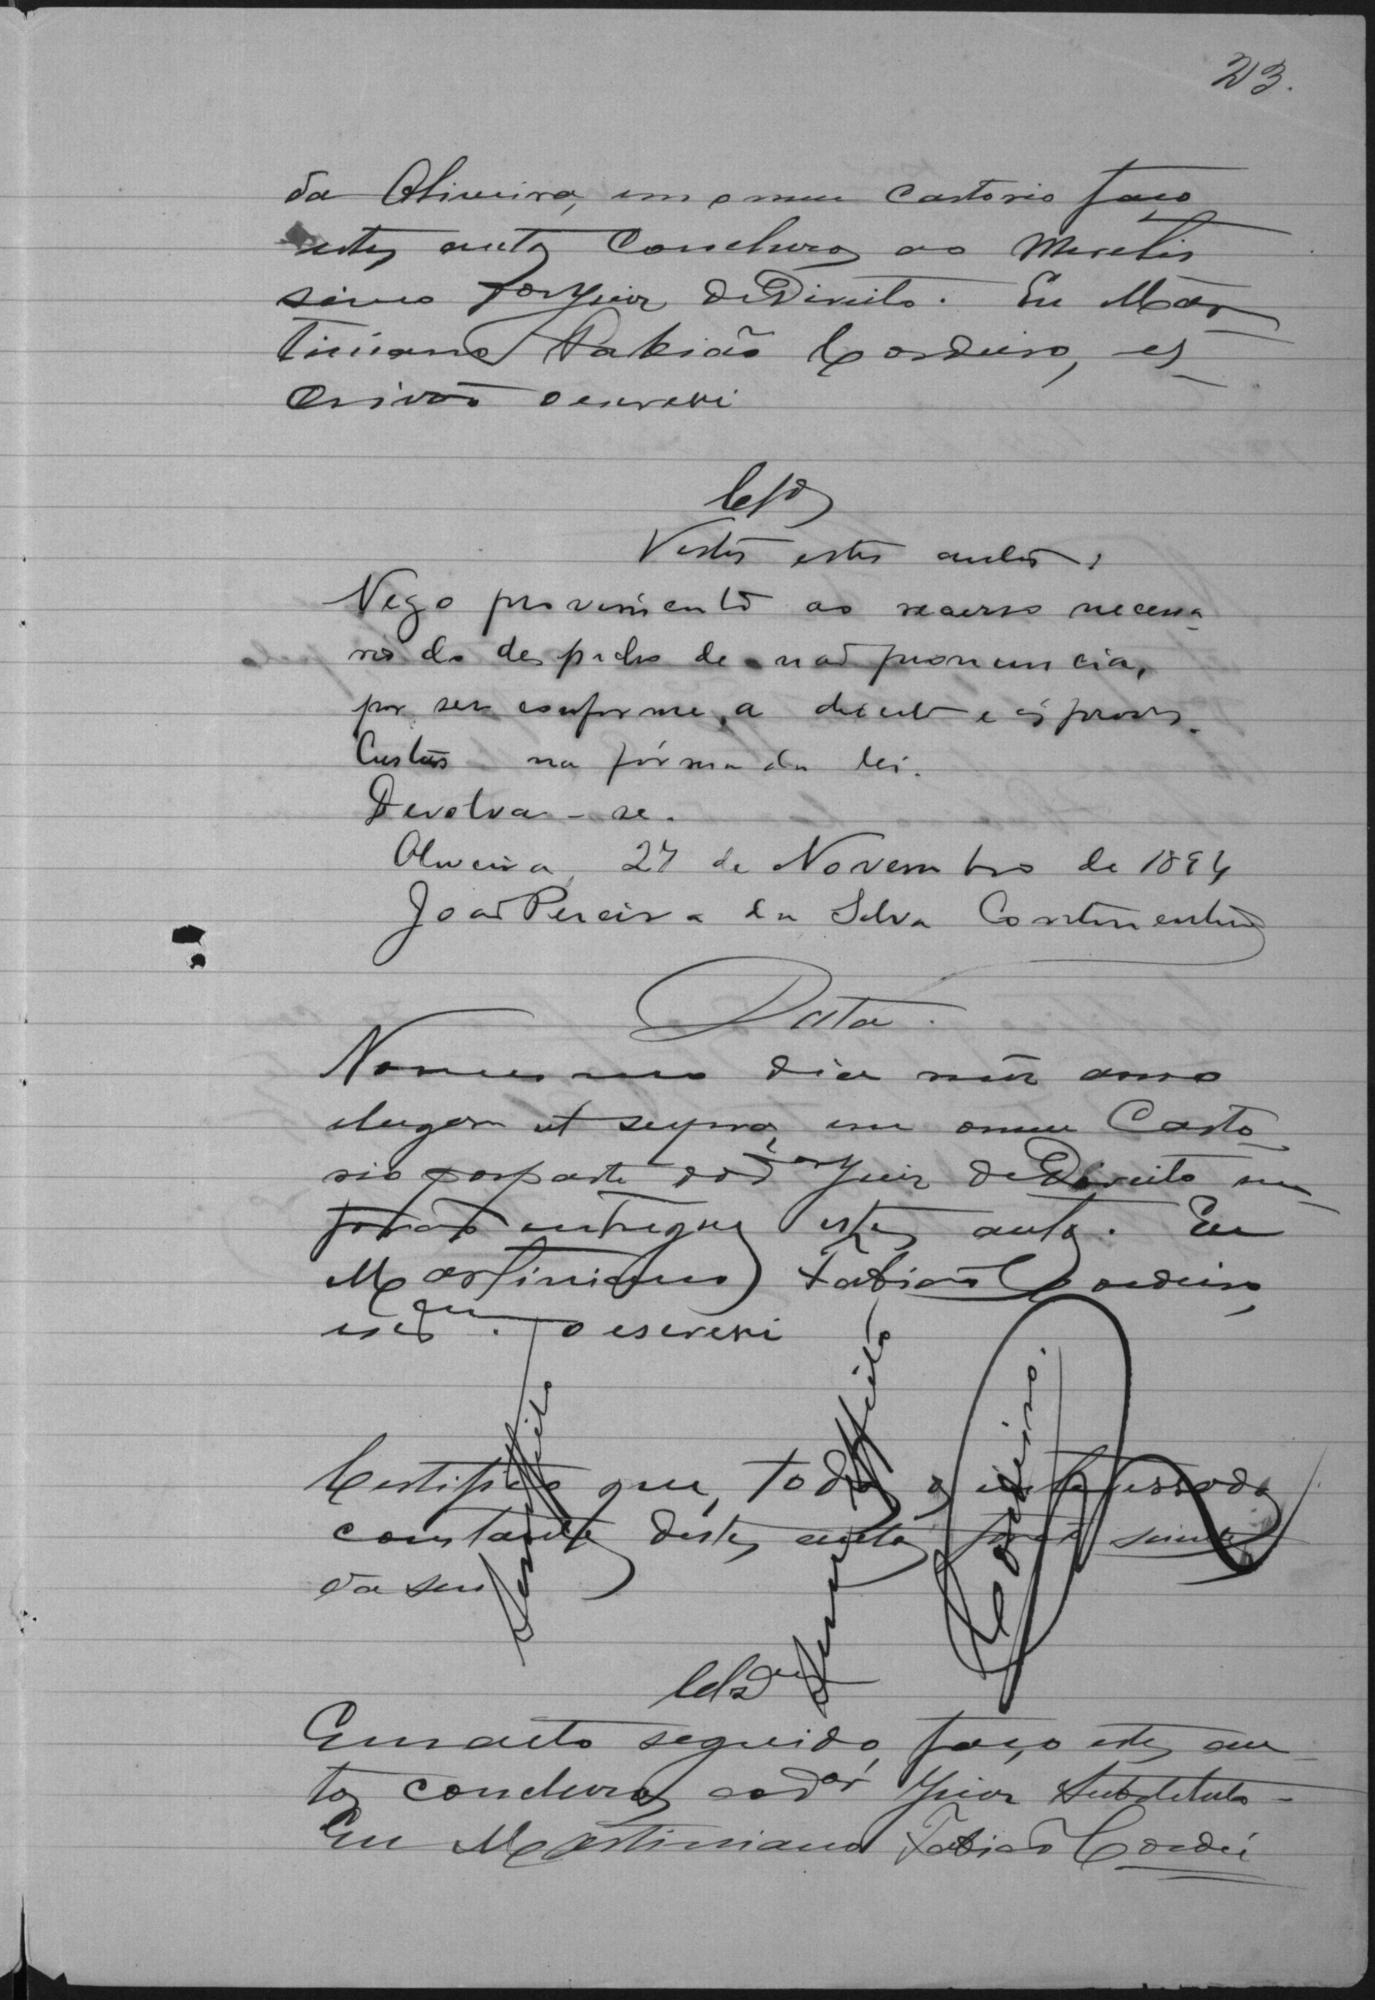 23.
da Oliveira, em o meu cartorio faço
estes autos conclusos ao Meretis
simo Dor Juiz de Direito. Eu Mar
tiniano Fabião Cordeiro, es
crivão o escrevi
Clsos
Vistos estes autos:
Nego provimento ao recurso necessa-
rio do despacho de não pronuncia,
por ser conforme a direito e ás provas.
Custas na fórma da lei.
Devolva-se.
Oliveira, 27 de Novembro de 1894
João Pereira da Silva Continentino
Data.
No mesmo dia mez anno
e lugar ut supra, em o meu Carto
rio por parte do Dor Juiz de Direito me
forão entregues estes autos. Eu
Martiniano Fabião Cordeiro,
escam. o escrevi
Certifico que, todos os interessados
constantes destes autos
da sen
Clsam
Em acto seguido, faço estes au
tos conclusos ao dor Juiz Substituto-
Eu Martiniano Fabião Cordei
Cordeiro.